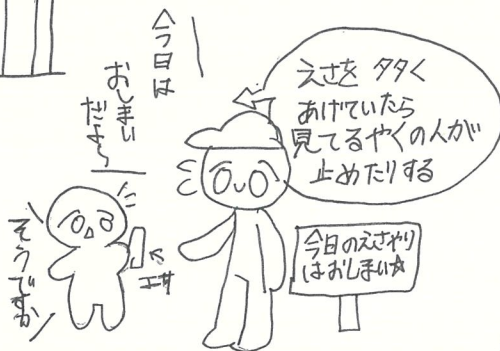 えさを タタく
あげていたら
見てるやくの人が
止めたりする
今日は
おしまい
だよ〜
そうですか
エサ
今日のえさやり
はおしまい☆